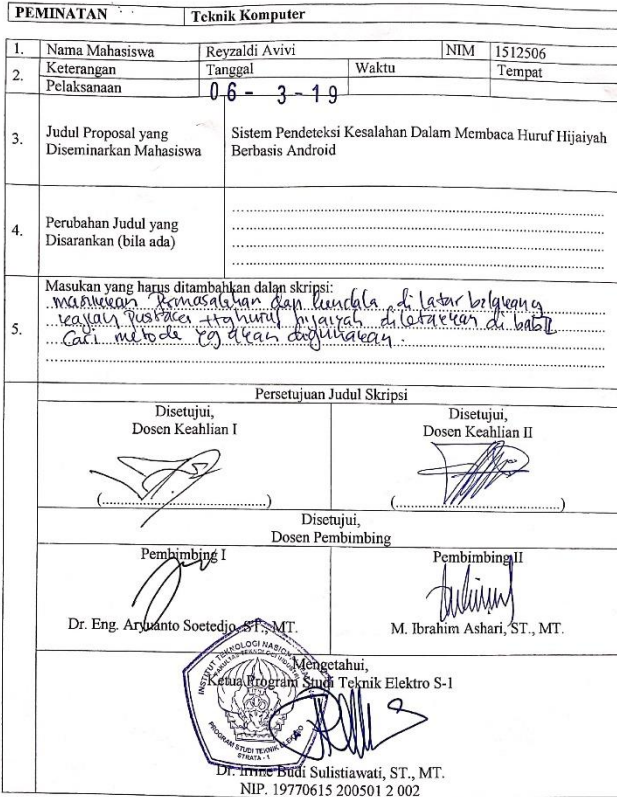 PEMINATAN Teknik Komputer
1. Nama Mahasiswa Reyzaldi Avivi NIM 1512506
2. Keterangan Pelaksanaan Tanggal Waktu Tempat
06 - 3 - 19
3. Judul Proposal yang Diseminarkan Mahasiswa Sistem Pendeteksi Kesalahan Dalam Membaca Huruf Hijaiyah
Berbasis Android
4. Perubahan Judul yang
Disarankan (bila ada)
5. Masukan yang harus ditambahkan dalan skripsi:
masukkan Permasalahan dan kendala di latar belakang
kajian pustaka ttg huruf hijaiyah diletakkan di bab II
Cari metode yg akan digunakan.
Persetujuan Judul Skripsi
Disetujui,
Dosen Keahlian I
Disetujui,
Dosen Keahlian II
(..............................)
(..............................)
Disetujui,
Dosen Pembimbing
Pembimbing I
Dr. Eng. Aryuanto Soetedjo, ST., MT.
Pembimbing II
M. Ibrahim Ashari, ST., MT.
Mengetahui,
Ketua Program Studi Teknik Elektro S-1
INSTITUT TEKNOLOGI NASIONAL
FAKULTAS TEKNOLOGI INDUSTRI
PROGRAM STUDI TEKNIK ELEKTRO
STRATA - 1
Dr. Irrine Budi Sulistiawati, ST., MT.
NIP. 19770615 200501 2 002